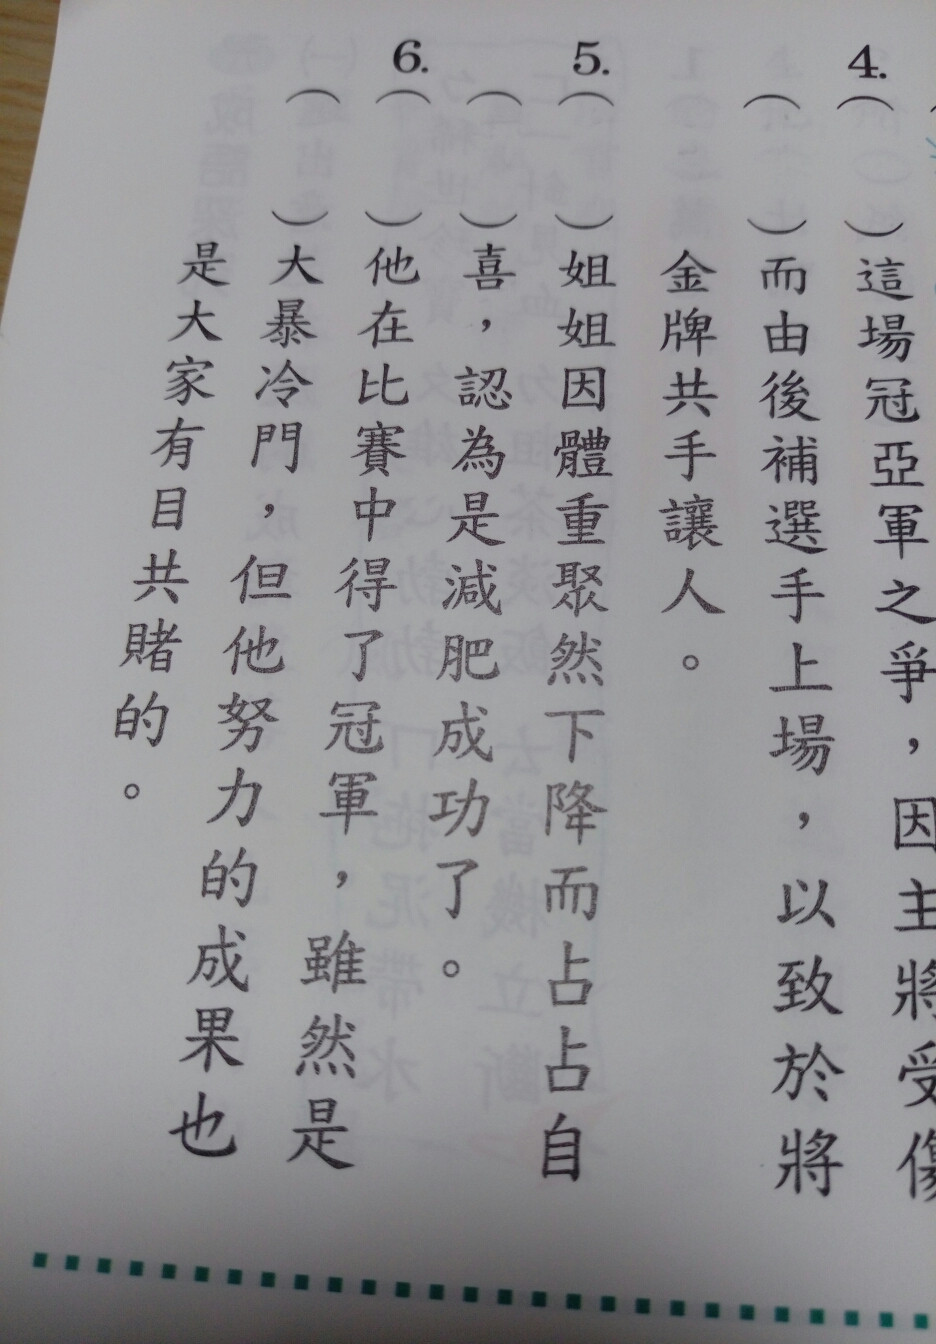 4.（ ）這場冠亞軍之爭，因主將受傷
（ ）而由後補選手上場，以致於將
金牌共手讓人。
5.（ ）姐姐因體重聚然下降而占占自
（ ）喜，認為是減肥成功了。
6.（ ）他在比賽中得了冠軍，雖然是
（ ）大暴冷門，但他努力的成果也
是大家有目共賭的。